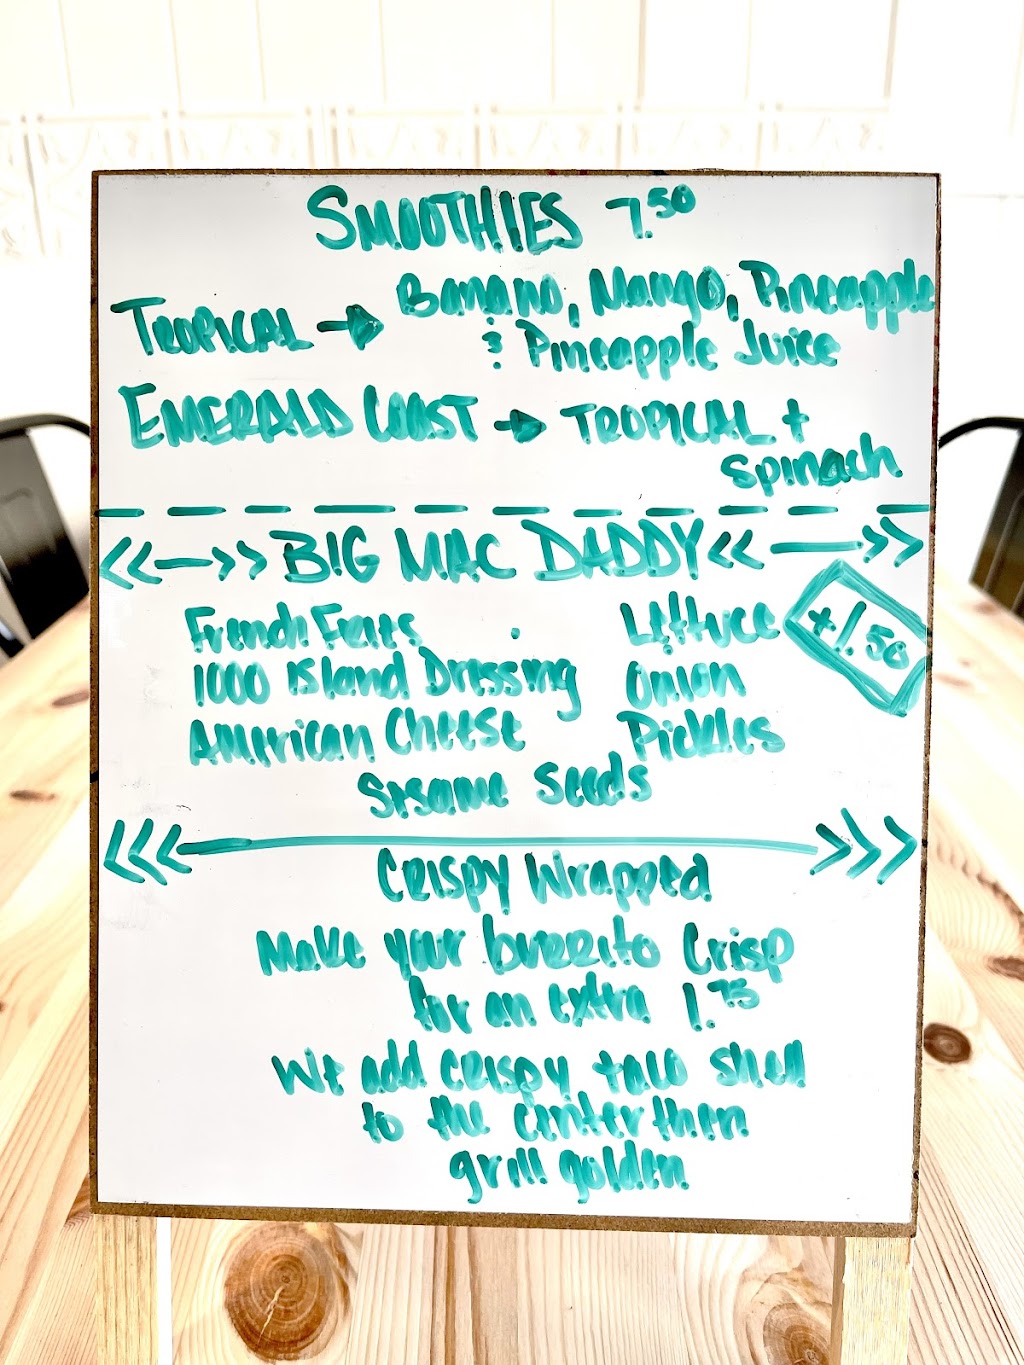 SMOOTHIES 7.50
TROPICAL → Banana, Mango, Pineapple
& Pineapple Juice
EMERALD COAST → TROPICAL +
Spinach
BIG MAC DADDY
French Fries Lettuce +1.50
1000 Island Dressing Onion
American Cheese Pickles
Sesame Seeds
Crispy Wrapped
Make your burrito Crisp
for an extra 1.75
We add crispy taco shell
to the center then
grill golden